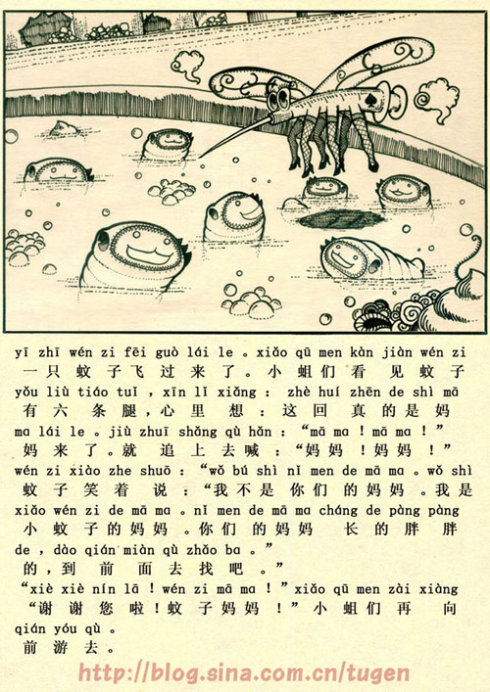 yī zhī wén zi fēi guò lái le 。xiǎo qū men kàn jiàn wén zi
一只蚊子飞过来了。小蛆们看见蚊子
yǒu liù tiáo tuǐ ,xīn lǐ xiǎng : zhè huí zhēn de shì mā
有六条腿,心里想:这回真的是妈
ma lái le 。jiù zhuī shǎng qù hǎn :“mā ma !mā ma !”
妈来了。就追上去喊:“妈妈!妈妈!”
wén zi xiào zhe shuō :“wǒ bú shì nǐ men de mā ma 。wǒ shì
蚊子笑着说:“我不是你们的妈妈。我是
xiǎo wén zi de mā ma 。nǐ men de mā ma cháng de pàng pàng
小蚊子的妈妈。你们的妈妈长的胖胖
de ,dào qián miàn qù zhǎo ba 。”
的,到前面去找吧。”
“xiè xiè nín lā !wén zi mā ma !”xiǎo qū men zài xiàng
“谢谢您啦!蚊子妈妈!”小蛆们再向
qián yóu qù 。
前游去。
http://blog.sina.com.cn/tugen